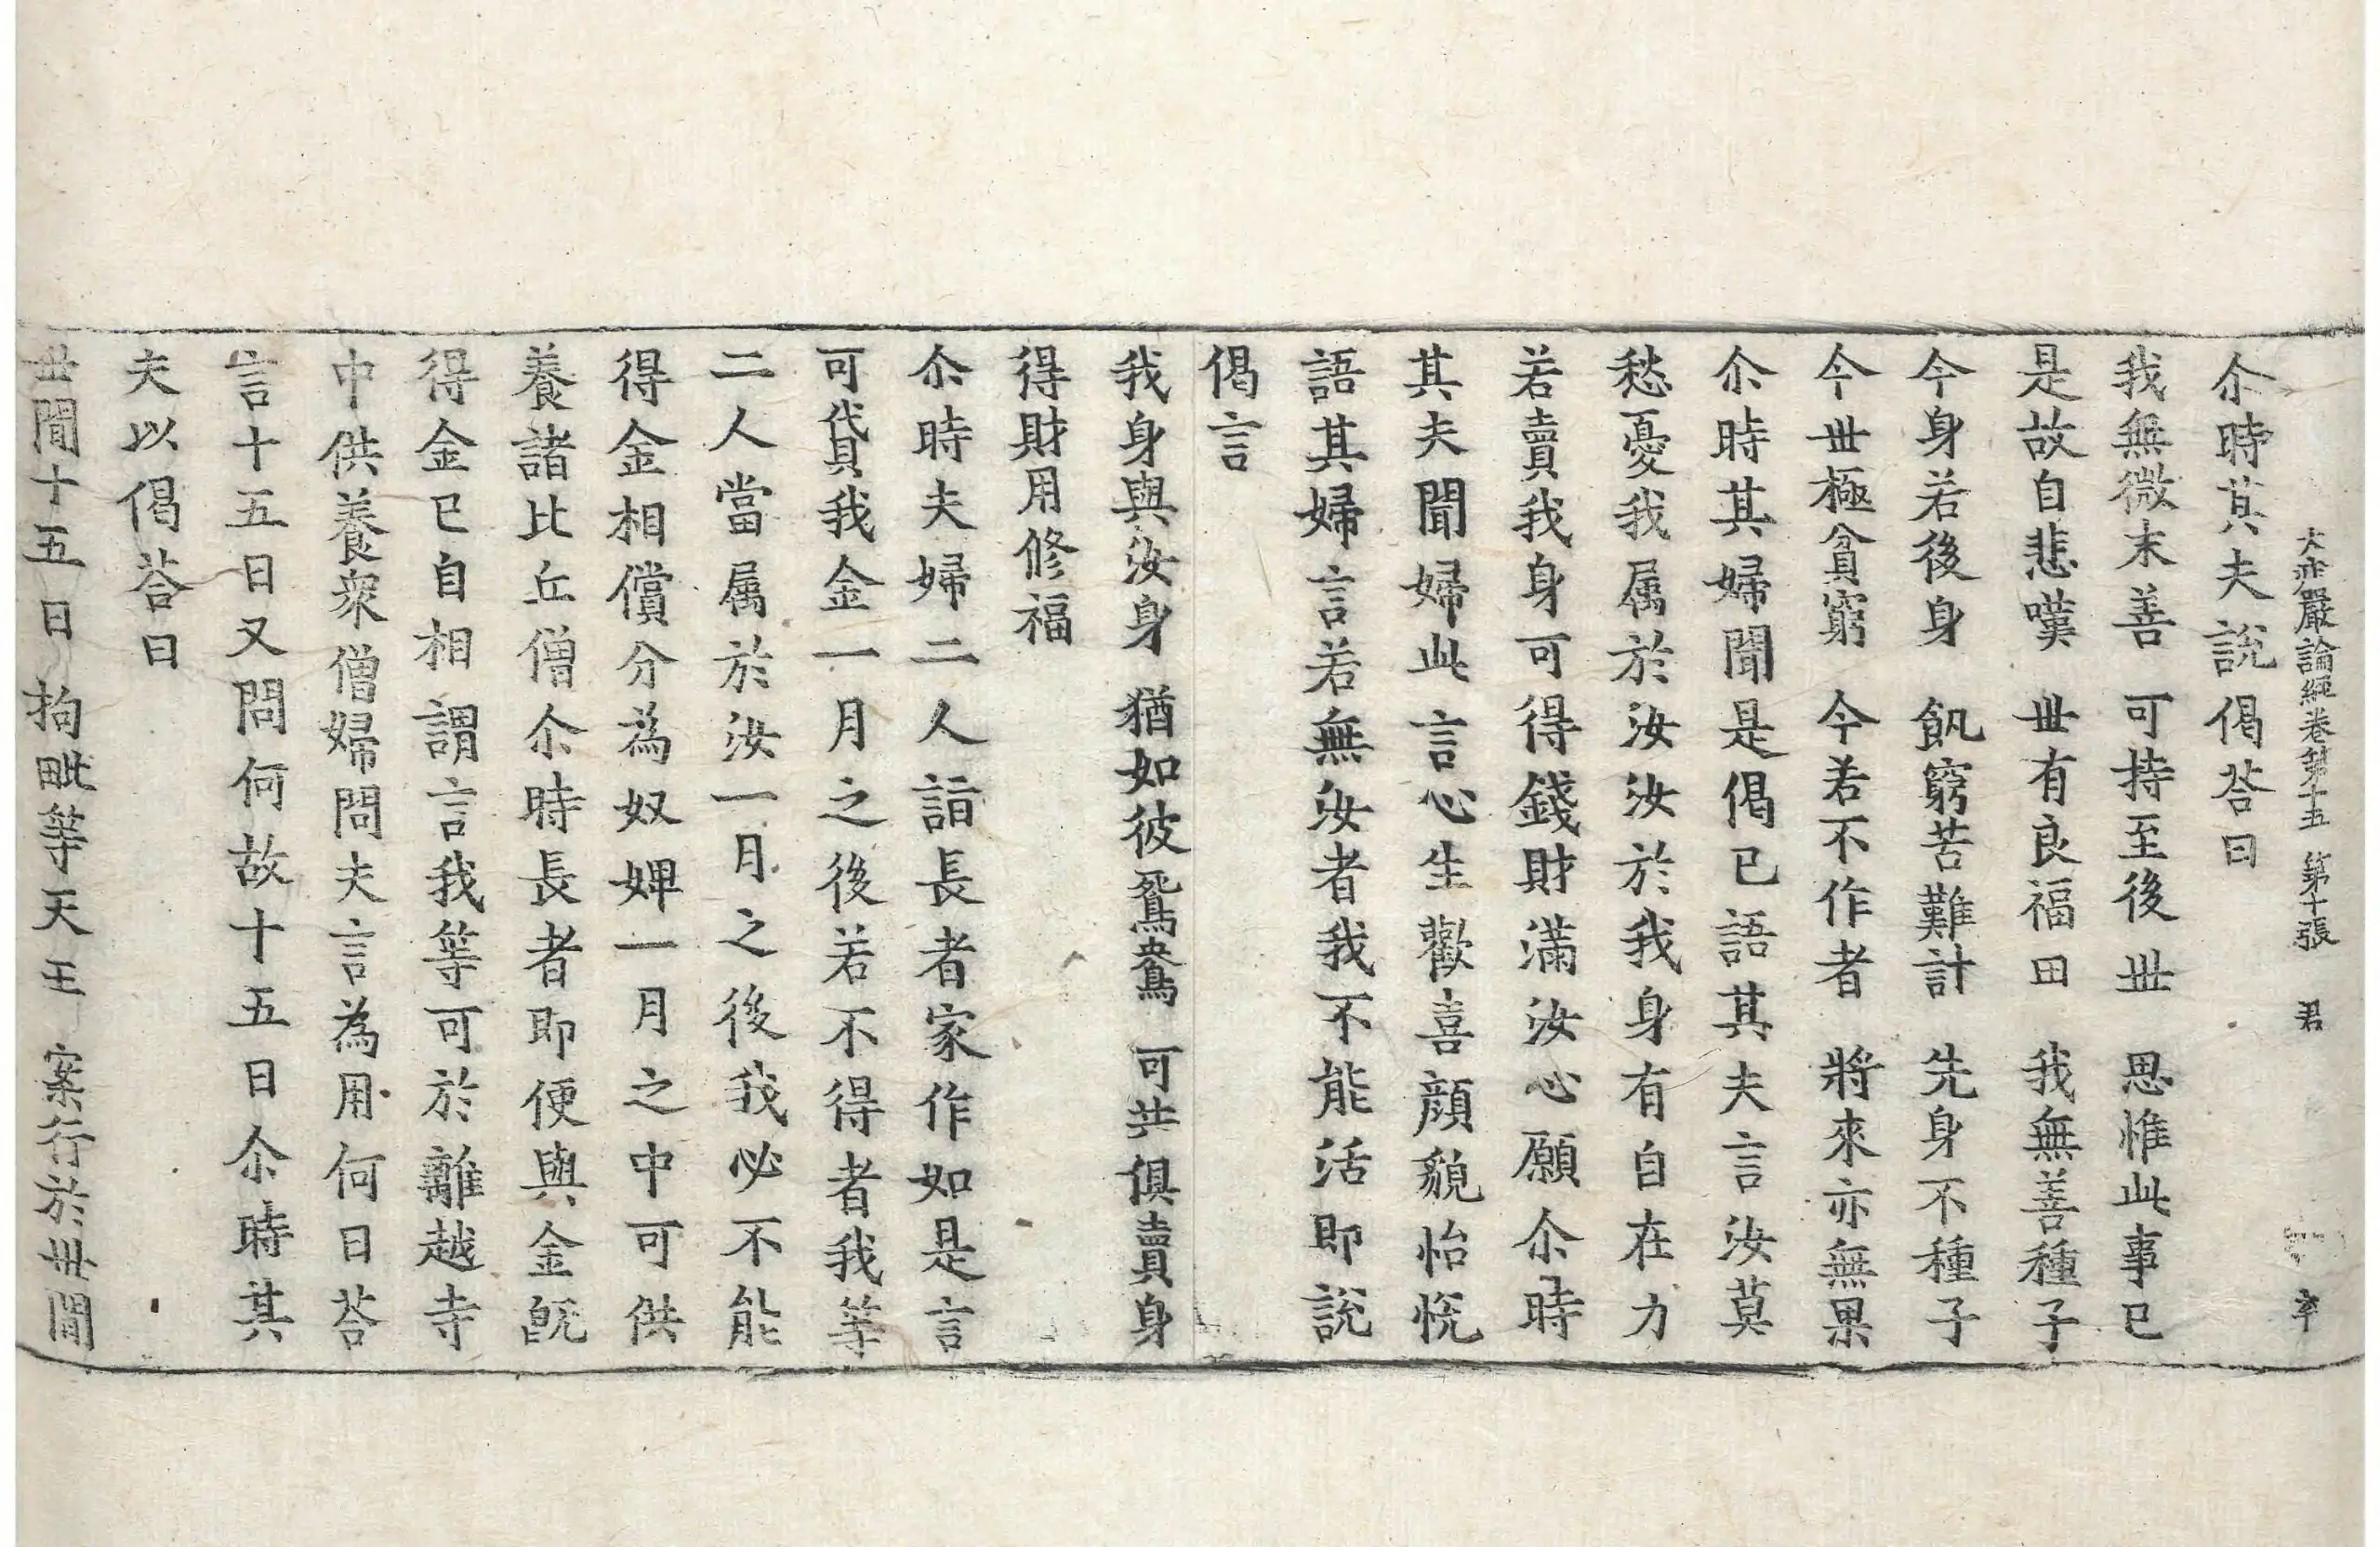 大莊嚴論經卷第十五 第十張 君
尒時其夫說偈荅曰
我無微末善 可持至後世 思惟此事已
是故自悲嘆 世有良福田 我無善種子
今身若後身 飢窮苦難計 先身不種子
今世極貧窮 今若不作者 將來亦無果
尒時其婦聞是偈已語其夫言汝莫
愁憂我属於汝汝於我身有自在力
若賣我身可得錢財滿汝心願尒時
其夫聞婦此言心生歡喜顔貌怡悦
語其婦言若無汝者我不能活即說
偈言
我身與汝身 猶如彼鴛鴦 可共俱賣身
得財用修福
尒時夫婦二人詣長者家作如是言
可貸我金一月之後若不得者我等
二人當属於汝一月之後我必不能
得金相償分為奴婢一月之中可供
養諸比丘僧尒時長者即便與金既
得金已自相謂言我等可於離越寺
中供養衆僧婦問夫言為用何日荅
言十五日又問何故十五日尒時其
夫以偈荅曰
世間十五日 拘毗等天王 案行於世間